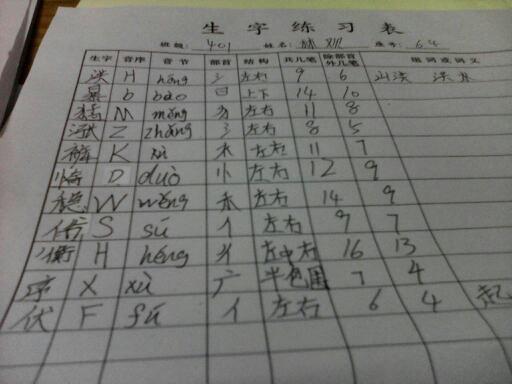 生字练习表
班级: 401 姓名: 林 座号: 64
生字 音序 音节 部首 结构 共几笔 除部首外几笔 组词或词义
洪 H hóng 氵 左右 9 6 山洪 洪水
暴 b bào 日 上下 14 10
猛 M měng 犭 左右 11 8
涨 Z zhǎng 氵 左右 8 5
K 木 左右 11 7
惰 D duò 忄 左右 12 9
稳 W wěng 禾 左右 14 9
俗 S sú 亻 左右 9 7
衡 H héng 彳 左中右 16 13
序 X xù 广 半包围 7 4
伏 F fú 亻 左右 6 4 起